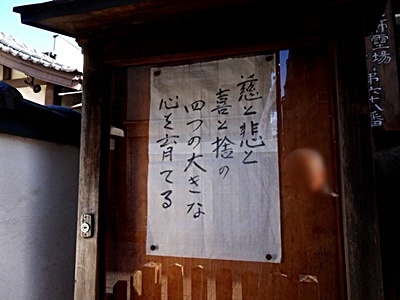 慈と悲と
喜と捨の
四つの大きな
心を育てる
霊場第六十八番